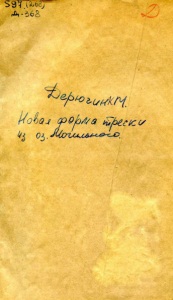 597(069)
Д-368
2
Дерюгин К.М.
Новая форма трески
из оз. Могильного.